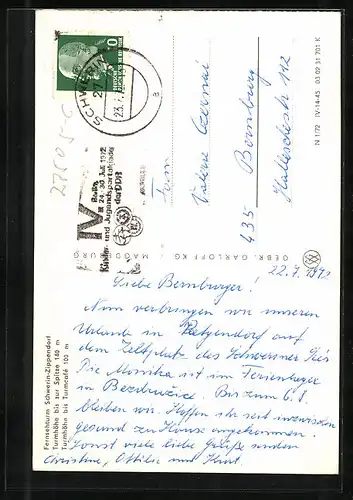 SCHWERIN
27
23.7.
DEUTSCHE
IV
Berlin
24.-30. Juli 1972
Kinder- und Jugendspartakiade
der DDR
N 1/72 IV-14-45 03 02 31 701 K
Fam.
Valerie
435 Bernburg
GEBR. GARLOFF KG MAGDEBURG
22.7.1972
Liebe Bernburger!
Nun verbringen wir unseren
Urlaub in Retgendorf auf
dem Zeltplatz des Schweriner Sees
Die Monika ist im Ferienlager
in Bezdružice. Bis zum 6.8.
bleiben wir. Hoffen ihr seid inzwischen
gesund zu Hause angekommen.
Sonst viele liebe Grüße senden
Christine, Ottilie und
Fernsehturm Schwerin-Zippendorf
Turmhöhe bis zur Spitze 140 m
Turmhöhe bis Turmcafé 100 m